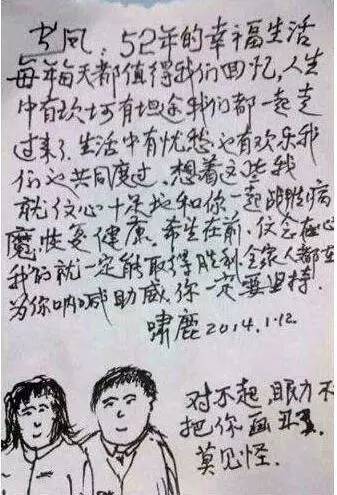 书凤：52年的幸福生活
每年每天都值得我们回忆，人生
中有坎坷有坦途我们都一起走
过来了.生活中有忧愁也有欢乐我
们也共同度过.想着这些我
就信心十足地和你一起战胜病
魔.恢复健康.希生在前.信念在心
我的就一定能取得胜利全家人都在
为你呐喊助威.你一定要坚持.
啸鹿2014.1.12.
对不起，眼力不
把你画丑了.
莫见怪.